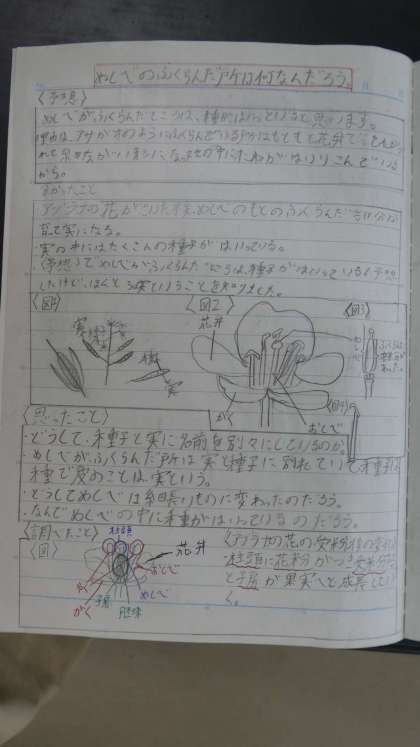 めしべのふくらんだ所は何なんだろう。
〈予想〉
めしべがふくらんだところは、種がはいっていると思います。
理由は、アサガオのようにふくらんでいる所はもともと花弁で
からだ。
わかったこと
アブラナの花がさいた後、めしべのもとのふくらんだ部分が
育って実になる。
・実の中にはたくさんの種子がはいっている。
・〈予想〉でめしべがふくらんだところは、種子がはいっていると予想
したけど、ほんとうは実ということを知りました。
〈図1〉
実
種
実
〈図2〉
花弁
がく
おしべ
〈図3〉
めしべ
ふくらんだ
〈図4〉
〈思ったこと〉
・どうして、種子と実に名前を別々にしているのか。
・めしべがふくらんだ所は実と種子に別れていて、種子は
種で皮のことは実という。
・どうしてめしべは細長いものに変わったのだろう。
・なんでめしべの中に種がはいっているのだろう。
〈調べたこと〉
〈図〉
柱頭
花弁
おしべ
めしべ
がく
子房
胚珠
〈アブラナの花の受粉後の変化〉
柱頭に花粉がつき受粉
と子房が果実へと成長してい
く。